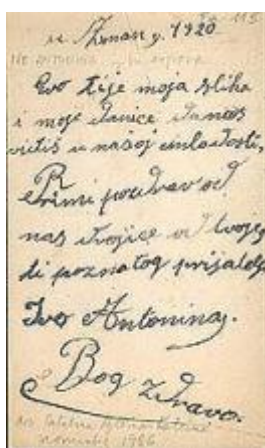 u Zman g. 1920
113
Evo ti je moja slika
i moje Danice danas
vidiš u našoj mladosti,
Primi pozdrav od
nas dvojice od tvojeg
ti poznatog prijatelja
Ivo Antonina.
Bog zdravo.
1986